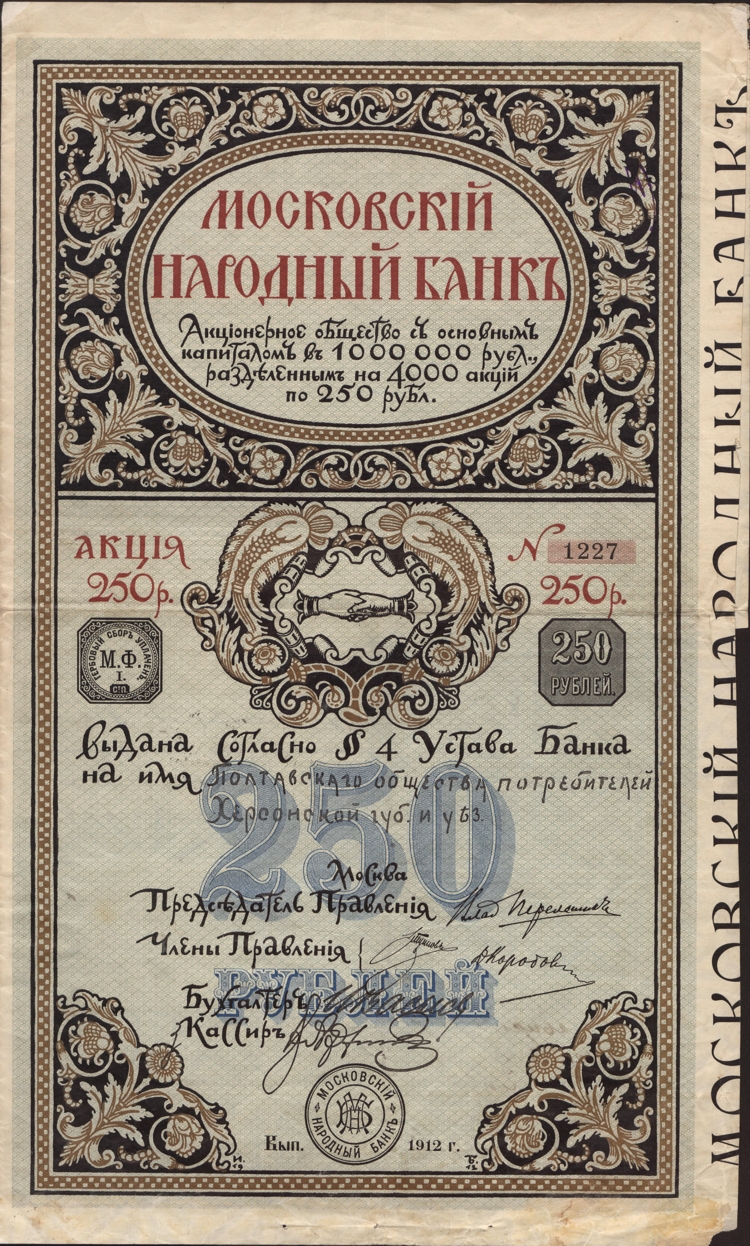 МОСКОВСКІЙ
НАРОДНЫЙ БАНКЪ
Акціонерное общество съ основнымъ
капиталомъ въ 1 000 000 рубл.,
раздѣленнымъ на 4000 акцій
по 250 рубл.
АКЦІЯ
250р.
N 1227
250р.
ГЕРБОВЫЙ СБОРЪ УПЛАЧЕНЪ.
М.Ф.
I.
СТП.
250
РУБЛЕЙ.
Выдана Согласно § 4 Устава Банка
на имя Полтавскаго общества потребителей
Херсонской губ. и уѣз.
250
Москва
Предсѣдатель Правленія
Члены Правленія
РУБЛЕЙ
Бухгалтеръ
Кассиръ
МОСКОВСКІЙ
НАРОДНЫЙ БАНКЪ
Вып. 1912 г.
МОСКОВСКІЙ НАРОДНЫЙ БАНКЪ